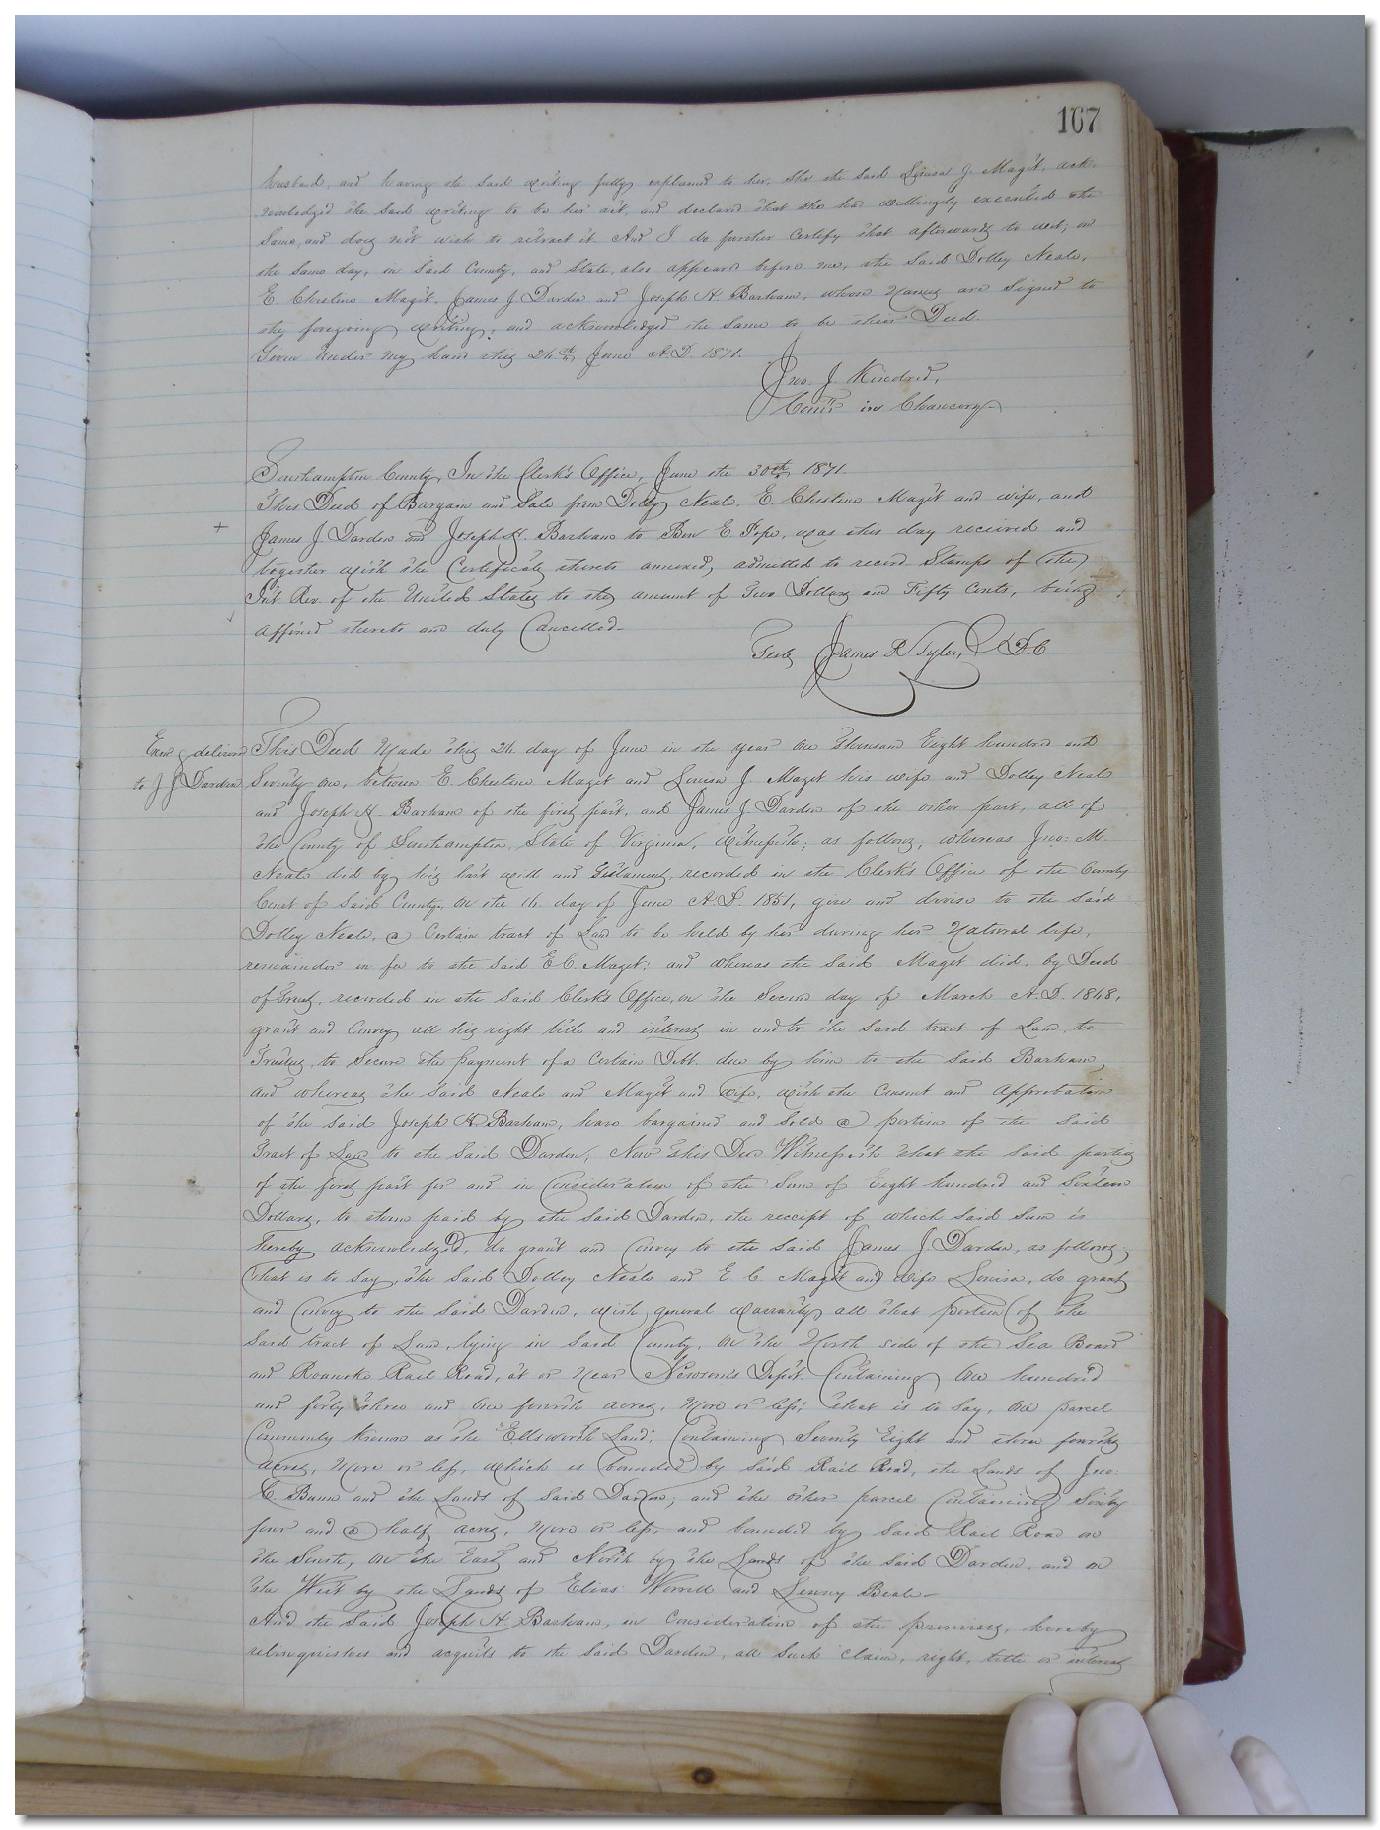 167
husband, and having the said writing fully explained to her, she the said Louisa J. Magit, ack-
nowledged the said writing to be her act, and declared that she had willingly executed the
same, and does not wish to retract it. And I do further certify that afterwards to wit; on
the same day, in said County, and State, also appeared before me, the said Dolley Neale,
E Chestine Magit, James J Darden and Joseph H. Barham, whose names are signed to
the foregoing writing, and acknowledged the same to be their Deed.
Given under my hand this 24th June A.D. 1871.
Jno. J. Kindred,
Comr in Chancery
Southampton County, In the Clerk's Office, June the 30th 1871.
This Deed of Bargain and Sale from Dolley Neale, E Chestine Magit and wife, and
James J. Darden and Joseph H. Barham to Ben E Pope, was this day received and
together with the Certificate thereto annexed, admitted to record Stamps of the
Int Rev. of the United States to the amount of Two Dollars and Fifty Cents, being
affixed thereto and duly Cancelled-
Teste, James R Tyler, DC
Exd & delivered
to J J Darden
This Deed Made this 24 day of June in the year One thousand Eight hundred and
Seventy One, between E. Chestine Magit and Louisa J. Magit his wife and Dolley Neale
and Joseph H. Barham of the first part, and James J. Darden of the other part, all of
the County of Southampton, State of Virginia, Witnesseth; as follows, whereas Jno: M.
Neale did by his last will and Testament, recorded in the Clerk's Office of the County
Court of Said County, on the 16 day of June A.D. 1851, give and devise to the said
Dolley Neale, a Certain tract of Land to be held by her during her Natural life,
remainder in fee to the said E.C. Magit; and whereas the said Magit did, by Deed
of Trust, recorded in the said Clerk's Office, on the Second day of March A.D. 1868,
grant and Convey all his right title and interest in and to the said tract of Land, to
Trustees, to secure the payment of a Certain Debt due by him to the said Barham,
and whereas the said Neale and Magit and wife, with the Consent and Approbation
of the said Joseph H Barham, have bargained and sold a portion of the said
Tract of Land to the said Darden, Now this Deed Witnesseth that the said parties
of the first part for and in Consideration of the Sum of Eight hundred and Sixteen
Dollars, to them paid by the said Darden, the receipt of which said Sum is
hereby acknowledged, do grant and Convey to the said James J. Darden, as follows,
that is to say, the said Dolley Neale and E C Magit and wife Louisa, do grant
and Convey to the said Darden, with general warranty all that portion of the
said tract of Land, lying in said County, on the North side of the Sea Board
and Roanoke Rail Road, at or near Newsoms Depot Containing One hundred
and forty three and One fourth acres, more or less; that is to say, One parcel
Commonly known as the "Ellsworth Land; Containing Seventy Eight and three fourths
Acres, more or less, which is bounded by said Rail Road, the Lands of Jno:
C. Bunn and the Lands of said Darden, and the other parcel Containing Sixty
four and a half acres, more or less, and bounded by said Rail Road on
the South, on the East and North by the Lands of the said Darden, and on
the West by the Lands of Elias Worrell and Benny Beale-
And the said Joseph H. Barham, in Consideration of the premises, hereby
relinquishes and acquits to the said Darden, all such claim, right, title or interest